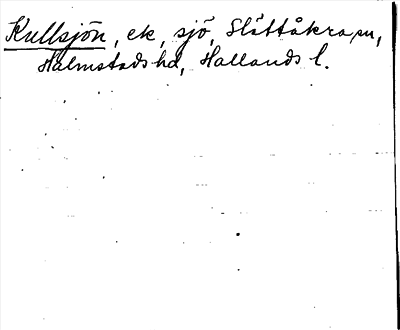 Kullsjön, ek, sjö, Slättåkra sn,
Halmstads hd, Hallands l.